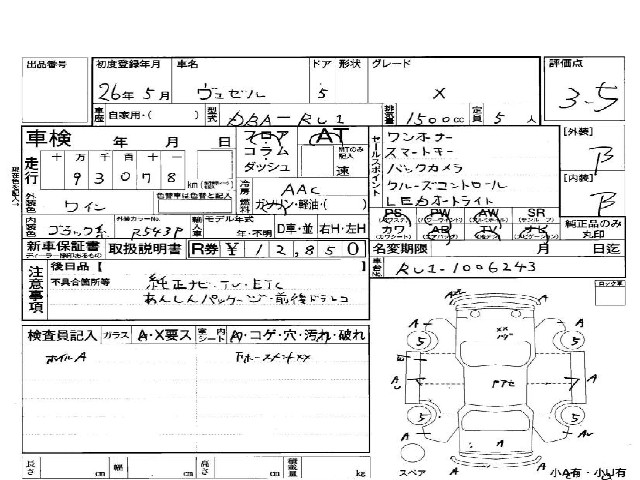 出品番号
初度登録年月 車名 ドア 形状 グレード
評価点
26年 5月 ヴェゼル 5 X
3-5
車歴 自家用・( ) 型式 DBA-RU1 排気量 1500cc 定員 5人
車検 年 月 日
フロア・コラム・ダッシュ
AT
MTのみ記入
速
セールスポイント
ワンオーナー
スマートキー
バックカメラ
クルーズコントロール
LEDオートライト
[外装]
B
[内装]
B
走行 十 万 千 百 十 一
93078 km
冷房 AAC
燃料 ガソリン・軽油・( )
外装色 ワイン 色替車は色替と記入
PS PW AW SR
カワ AB TV ナビ
純正品のみ丸印
内装色 ブラック系 外装カラーNo. R543P 輸入車 モデル年式 年・不明 D車・並 右H・左H
新車保証書 取扱説明書 R券 ¥12,850
名変期限 月 日迄
車台No. RU1-1006243
注意事項
後日品【 】
不具合箇所等
純正ナビ・TV・ETC
あんしんパッケージ・前後ドラレコ
ロック車
検査員記入 ガラス A・X要ス 室内シート A・コゲ・穴・汚れ・破れ
ホイルA
A
A
5
5
A
A
A
5
5
A
スペア
小A有・小U有
長さ cm 幅 cm 高さ cm 積載量 kg